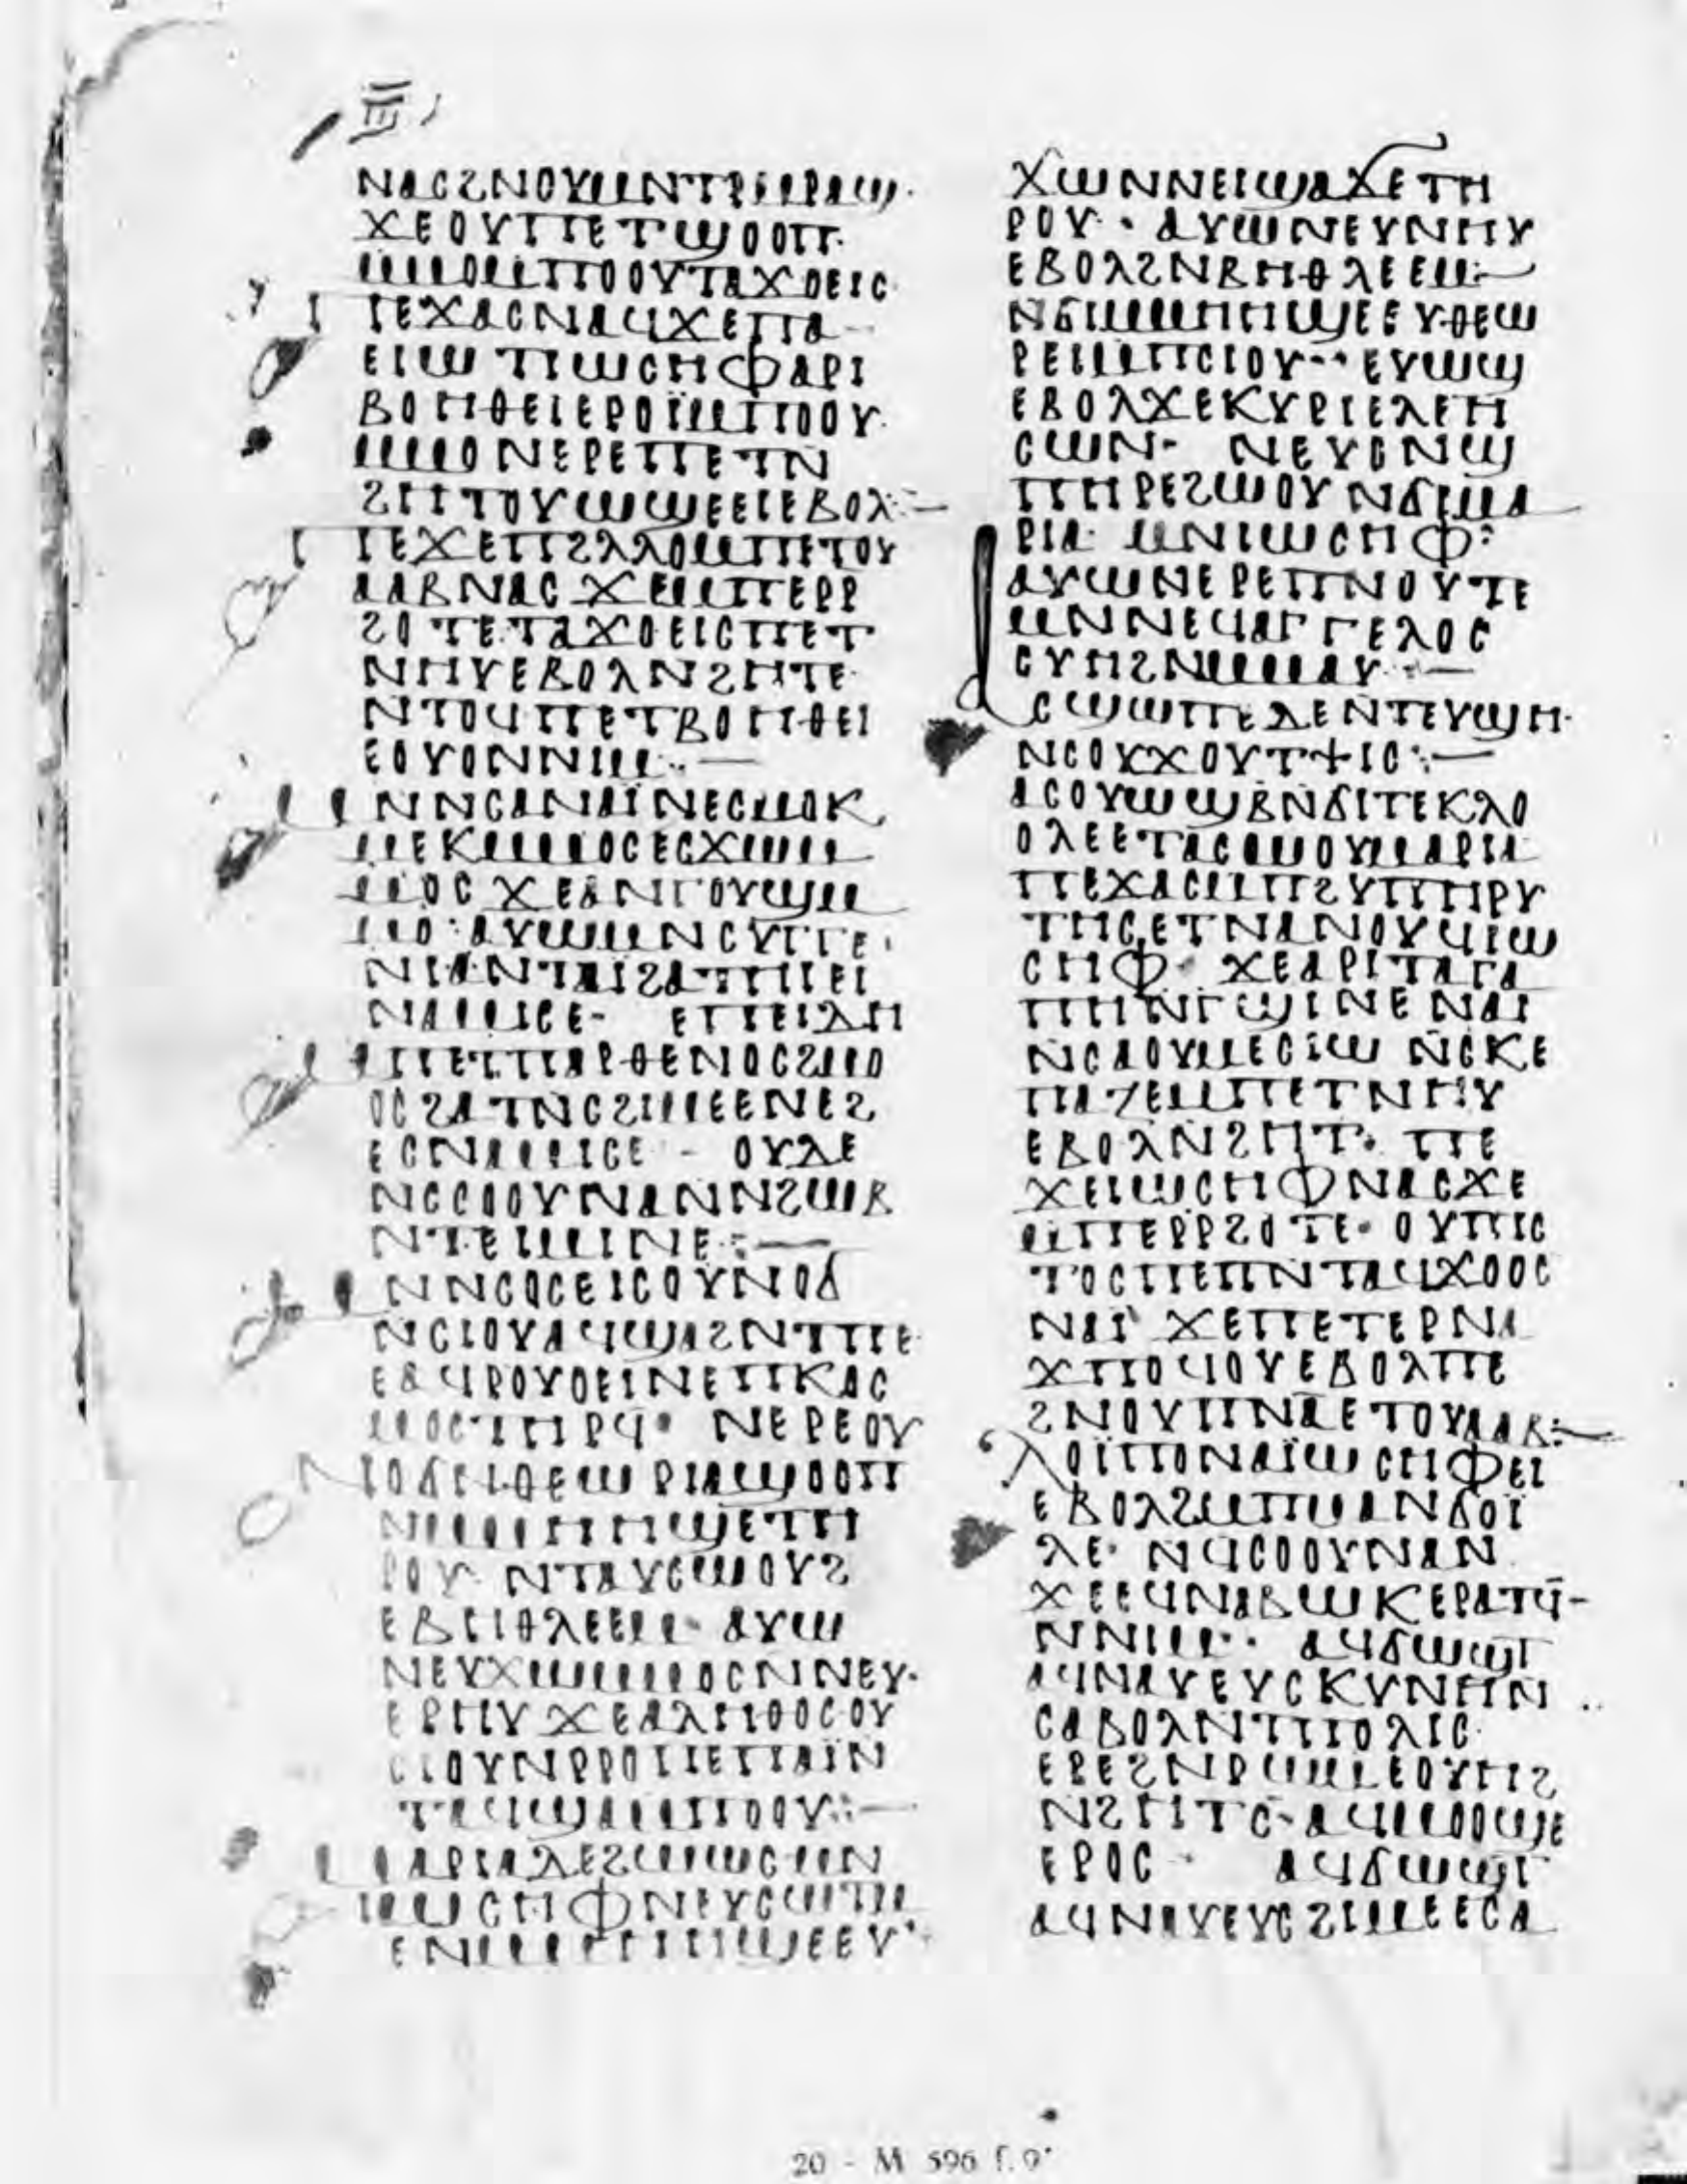 ⲓⲏ
ⲛⲁⲥϩⲛⲟⲩⲙⲛⲧⲣⲙⲣⲁϣ·
ϫⲉⲟⲩⲡⲉⲧϣⲟⲟⲡ·
ⲙⲙⲟⲙⲡⲟⲟⲩⲧⲁϫⲟⲉⲓⲥ
ⲡⲉϫⲁⲥⲛⲁϥϫⲉⲡⲁ
ⲉⲓⲱⲧⲓⲱⲥⲏⲫⲁⲣⲓ
ⲃⲟⲏⲑⲉⲓⲉⲣⲟⲓ̈ⲙⲡⲟⲟⲩ·
ⲙⲙⲟⲛⲉⲣⲉⲡⲉⲧⲛ
ϩⲏⲧⲟⲩⲱϣⲉⲉⲓⲉⲃⲟⲗ:—
ⲡⲉϫⲉⲡϩⲗⲗⲟⲙⲡⲉⲧⲟⲩ
ⲁⲁⲃⲛⲁⲥϫⲉⲙⲡⲉⲣⲣ
ϩⲟⲧⲉ·ⲧⲁϫⲟⲉⲓⲥⲡⲉⲧ
ⲛⲏⲩⲉⲃⲟⲗⲛϩⲏⲧⲉ·
ⲛⲧⲟϥⲡⲉⲧⲃⲟⲏⲑⲉⲓ
ⲉⲟⲩⲟⲛⲛⲓⲙ:—
ⲙⲛⲛⲥⲁⲛⲁⲓ̈ⲛⲉⲥⲙⲟⲕ
ⲙⲉⲕⲙⲙⲟⲥⲉⲥϫⲱⲙ
ⲙⲟⲥϫⲉⲁⲛⲅⲟⲩϣⲙ
ⲙⲟ·ⲁⲩⲱⲙⲛⲥⲩⲅⲅⲉ
ⲛⲓⲁⲛⲧⲁⲓϩⲁⲧⲏⲓⲉⲓ
ⲛⲁⲙⲓⲥⲉ· ⲉⲡⲉⲓⲇⲏ
ⲙⲡⲉⲡⲁⲣⲑⲉⲛⲟⲥϩⲙⲟ
ⲟⲥϩⲁⲧⲛⲥϩⲓⲙⲉⲉⲛⲉϩ
ⲉⲥⲛⲁⲙⲓⲥⲉ· ⲟⲩⲇⲉ
ⲛⲥⲥⲟⲟⲩⲛⲁⲛⲛϩⲱⲃ
ⲛⲧⲉⲓⲙⲓⲛⲉ:—
ⲙⲛⲛⲥⲱⲥⲉⲓⲥⲟⲩⲛⲟϭ
ⲛⲥⲓⲟⲩⲁϥϣⲁϩⲛⲧⲡⲉ·
ⲉⲁϥⲣⲟⲩⲟⲉⲓⲛⲉⲡⲕⲁⲥ
ⲙⲟⲥⲧⲏⲣϥ· ⲛⲉⲣⲉⲟⲩ
ⲛⲟϭⲛⲑⲉⲱⲣⲓⲁϣⲟⲟⲡ
ⲛⲙⲙⲏⲏϣⲉⲧⲏ
ⲣⲟⲩ· ⲛⲧⲁⲩⲥⲱⲟⲩϩ
ⲉⲃⲏⲑⲗⲉⲉⲙ· ⲁⲩⲱ
ⲛⲉⲩϫⲱⲙⲙⲟⲥⲛⲛⲉⲩ·
ⲉⲣⲏⲩϫⲉⲁⲗⲏⲑⲟⲥⲟⲩ
ⲥⲓⲟⲩⲛⲣⲣⲟⲡⲉⲡⲁⲓ̈ⲛ
ⲧⲁϥϣⲁⲙⲡⲟⲟⲩ:—
ⲙⲁⲣⲓⲁⲇⲉϩⲱⲱⲥⲙⲛ
ⲓⲱⲥⲏⲫⲛⲉⲩⲥⲱⲧⲙ
ⲉⲛⲙⲙⲏⲏϣⲉⲉⲩ
ϫⲱⲛⲛⲉⲓϣⲁϫⲉⲧⲏ
ⲣⲟⲩ· ⲁⲩⲱⲛⲉⲩⲛⲏⲩ
ⲉⲃⲟⲗϩⲛⲃⲏⲑⲗⲉⲉⲙ:—
ⲛϭⲓⲙⲙⲏⲏϣⲉⲉⲩⲑⲉⲱ
ⲣⲉⲓⲙⲡⲥⲓⲟⲩ·· ⲉⲩⲱϣ
ⲉⲃⲟⲗϫⲉⲕⲩⲣⲓⲉⲗⲉⲏ
ⲥⲱⲛ· ⲛⲉⲩⲟⲛϣ
ⲡⲏⲣⲉϩⲱⲟⲩⲛϭⲓⲙⲁ
ⲣⲓⲁ· ⲙⲛⲓⲱⲥⲏⲫ:
ⲁⲩⲱⲛⲉⲣⲉⲡⲛⲟⲩⲧⲉ
ⲙⲛⲛⲉϥⲁⲅⲅⲉⲗⲟⲥ
ⲥⲩⲏϩⲛⲙⲙⲁⲩ:—
ⲁⲥϣⲱⲡⲉⲇⲉⲛⲧⲉⲩϣⲏ·
ⲛⲥⲟⲩϫⲟⲩⲧϯⲓⲥ:—
ⲁⲥⲟⲩⲱϣⲃⲛϭⲓⲧⲉⲕⲗⲟ
ⲟⲗⲉⲉⲧⲁⲥⲱⲟⲩⲙⲁⲣⲓⲁ
ⲡⲉϫⲁⲥⲙⲡϩⲩⲡⲏⲣⲩ
ⲧⲏⲥⲉⲧⲛⲁⲛⲟⲩϥⲓⲱ
ⲥⲏⲫ· ϫⲉⲁⲣⲓⲧⲁⲅⲁ
ⲡⲏⲛⲅϣⲓⲛⲉⲛⲁⲓ
ⲛⲥⲁⲟⲩⲙⲉⲥⲓⲱ ⲛⲥⲕⲉ
ⲡⲁⲍⲉⲙⲡⲉⲧⲛⲏⲩ
ⲉⲃⲟⲗⲛϩⲏⲧ· ⲡⲉ
ϫⲉⲓⲱⲥⲏⲫⲛⲁⲥϫⲉ
ⲙⲡⲉⲣⲣϩⲟⲧⲉ· ⲟⲩⲡⲓⲥ
ⲧⲟⲥⲡⲉⲡⲉⲛⲧⲁϥϫⲟⲟⲥ
ⲛⲁⲓ̈ ϫⲉⲡⲉⲧⲉⲣⲛⲁ
ϫⲡⲟϥⲟⲩⲉⲃⲟⲗⲡⲉ
ϩⲛⲟⲩⲡⲛⲁⲉⲧⲟⲩⲁⲁⲃ:—
ⲗⲟⲓⲡⲟⲛⲁⲓ̈ⲱⲥⲏⲫⲉⲓ
ⲉⲃⲟⲗϩⲙⲡⲙⲁⲛϭⲟⲓ̈
ⲗⲉ· ⲛϥⲥⲟⲟⲩⲛⲁⲛ
ϫⲉⲉϥⲛⲁⲃⲱⲕⲉⲣⲁⲧϥ̄-
ⲛⲛⲓⲙ·· ⲁϥϭⲱϣⲧ
ⲁϥⲛⲁⲩⲉⲩⲥⲕⲩⲛⲏⲛ
ⲥⲁⲃⲟⲗⲛⲧⲡⲟⲗⲓⲥ
ⲉⲣⲉϩⲛⲣⲱⲙⲉⲟⲩⲏϩ
ⲛϩⲏⲧⲥ·ⲁϥⲙⲟⲟϣⲉ
ⲉⲣⲟⲥ· ⲁϥϭⲱϣⲧ
ⲁϥⲛⲁⲩⲉⲩⲥϩⲓⲙⲉⲉⲥⲁ
20 - M 596 f. 9ᵛ